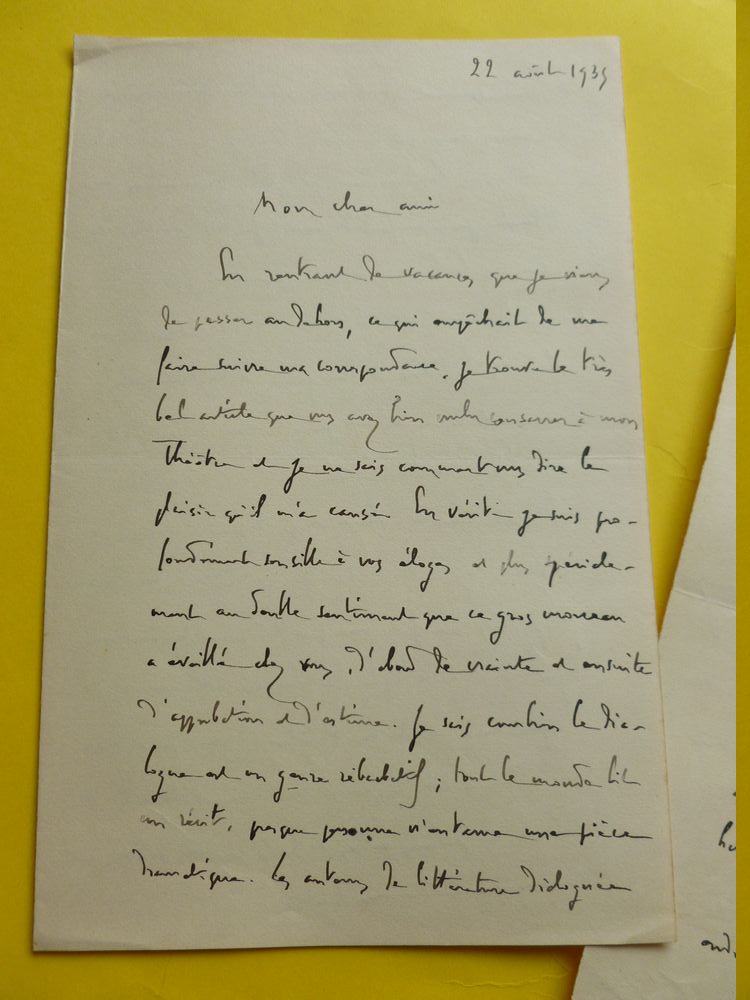 22 août 1939
Mon cher ami
En rentrant de vacances que je viens
de passer au dehors, ce qui empêchait de me
faire suivre ma correspondance, je trouve le très
bel article que vous avez bien voulu consacrer à mon
théâtre et je ne sais comment vous dire le
plaisir qu'il m'a causé. En vérité je suis pro-
fondément sensible à vos éloges et plus spéciale-
ment au double sentiment que ce gros morceau
a éveillé chez vous, d'abord de crainte et ensuite
d'approbation et d'estime. Je sais combien le dia-
logue est un genre rébarbatif ; tout le monde lit
un récit, presque personne n'entame une pièce
dramatique. Les auteurs de littérature dialoguée